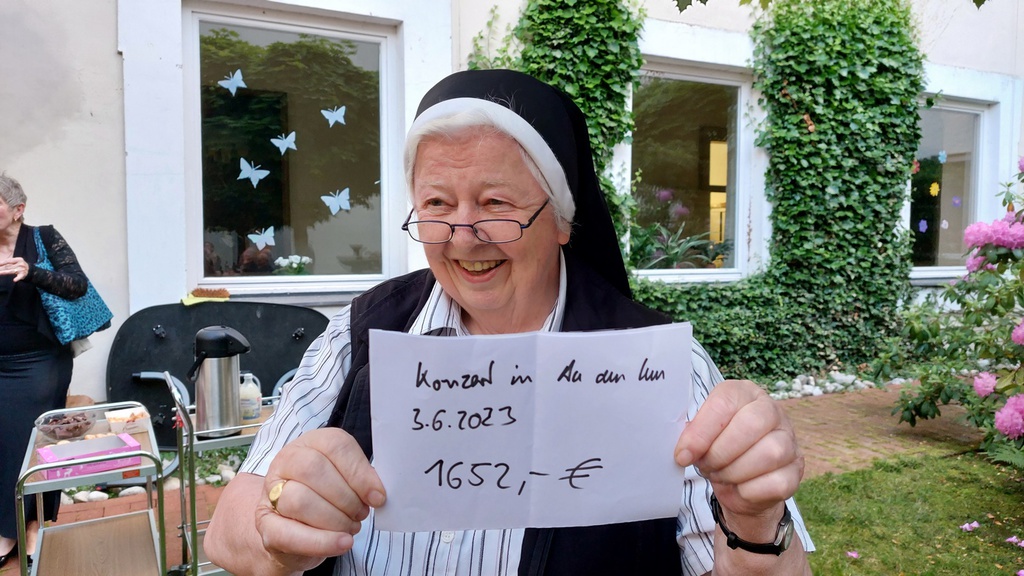 Konzert in An der Inn
3.6.2023
1652,- €